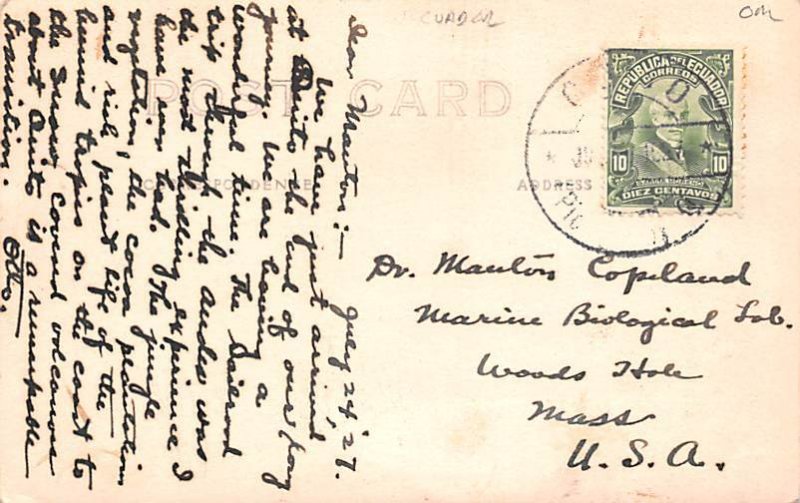 ECUADOR
POST CARD
CORRESPONDENCE
ADDRESS
REPUBLICA DEL ECUADOR
CORREOS
10 10
DIEZ CENTAVOS
QUITO
July 24, '27.
Dear Manton:-
We have just arrived
at Quito the end of our long
journey. We are having a
wonderful time. The railroad
trip through the Andes was
the most thrilling experience I
have ever had. The jungle
vegetation, the cocoa plantation
and rich plant life of the
humid tropics on the coast to
the snow covered volcanoes
about Quito is a remarkable
transition.
Otto.
Dr. Manton Copeland
Marine Biological Lab.
Woods Hole
Mass
U. S. A.